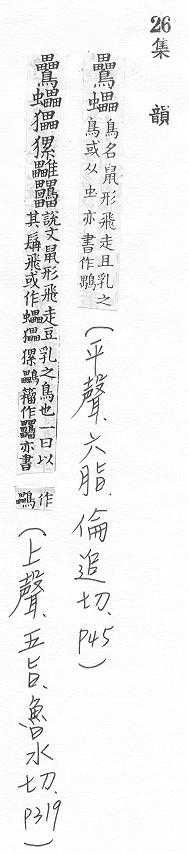 26 集 韻
鸓蠝 鳥名鼠形飛走且乳之鳥或从虫亦書作
(平聲.六脂.倫追切.P45)
鸓蠝 說文鼠形飛走且乳之鳥也一曰以其飛或作蠝籒作亦書作
(上聲.五旨.魯水切.P319)